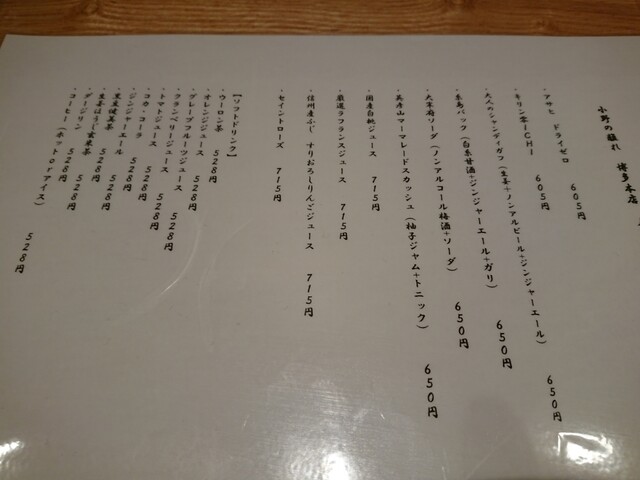 小野の離れ 博多本店
・アサヒ ドライゼロ 605円
・キリン零ICHI 605円
・大人のシャンディガフ(生姜+ノンアルビール+ジンジャーエール) 650円
・糸島バック(白糸甘酒+ジンジャーエール+ガリ) 650円
・太宰府ソーダ(ノンアルコール梅酒+ソーダ) 650円
・英彦山マーマレードスカッシュ(柚子ジャム+トニック) 650円
・国産白桃ジュース 715円
・厳選ラフランスジュース 715円
・信州産ふじ すりおろしりんごジュース 715円
・セイントローズ 715円
【ソフトドリンク】
・ウーロン茶 528円
・オレンジジュース 528円
・グレープフルーツジュース 528円
・クランベリージュース 528円
・トマトジュース 528円
・コカ・コーラ 528円
・ジンジャーエール 528円
・黒豆健美茶 528円
・生姜ほうじ玄米茶 528円
・ダージリン 528円
・コーヒー(ホットorアイス) 528円